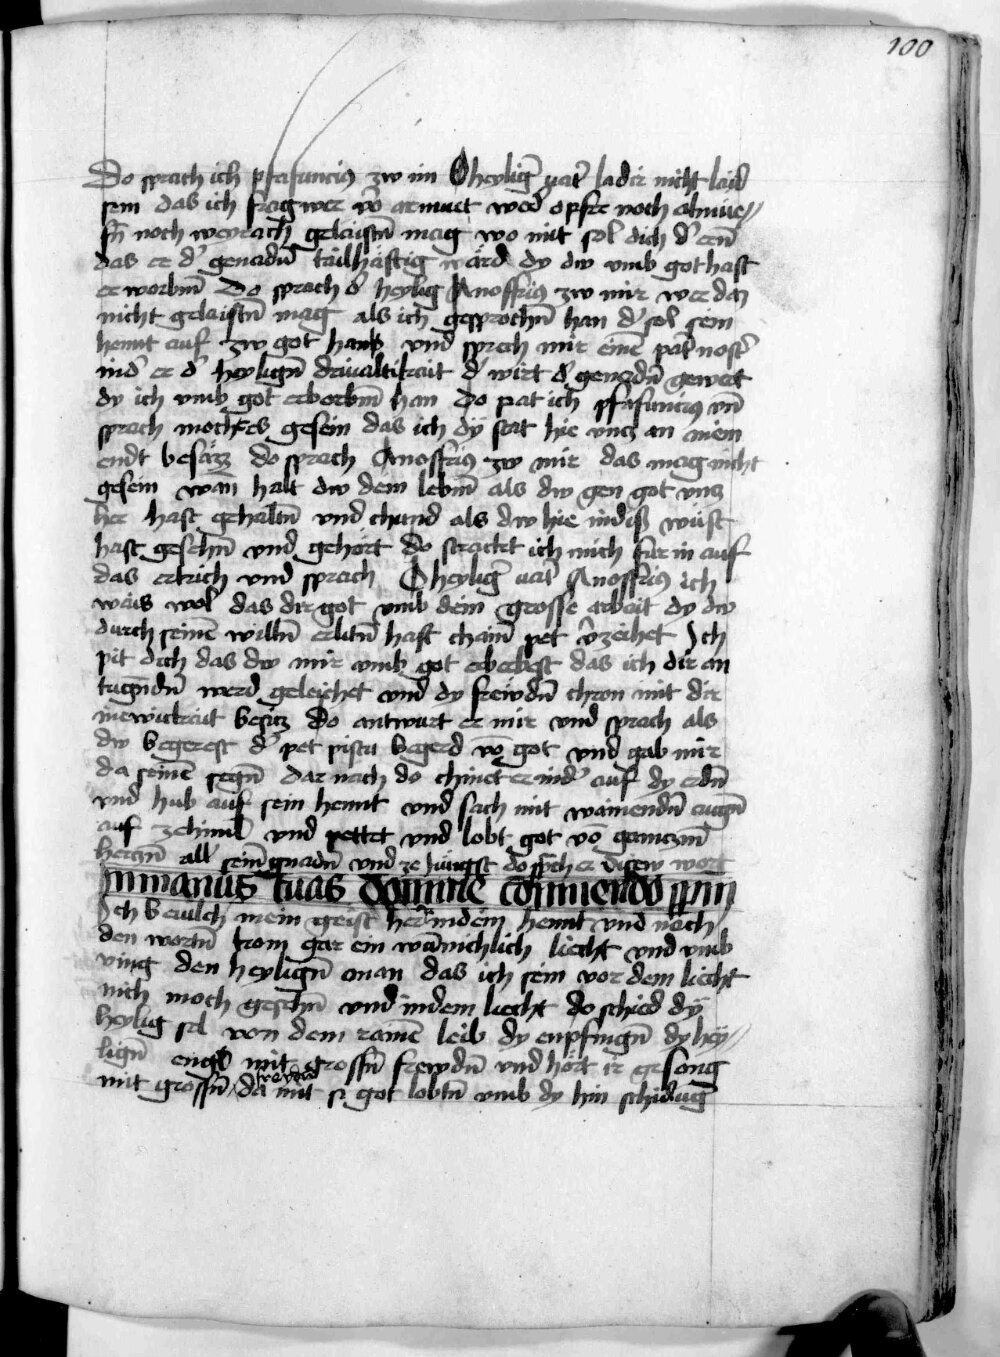 100
Do sprach ich pfafuncius zw im O heylig̃ vat̃ la dir nicht laid
sein das ich frag wer vō armuet wed̃ opfer noch almües//
ſñ noch weyrach gelaistñ mag wo mit sol dich d̃ erñ
das er d̃ genadñ tailhäftig wärd dy dw vmb got hast
erworbñ Do sprach d̃ heylig Anoffrius zw mir wer daz
nicht gelaistñ mag als ich gesprochñ han d̃ sol sein
hennt auf zw got habñ vnd sprech mir einē pat̃ nost̃
in d̃ er d̃ heyligñ driualtikait d̃ wirt d̃ genadñ gewert
dy ich vmb got erborbñ han Do pat ich pfafuncius vñ
sprach mocht es gesein das ich dÿ stat hie vncz an mein
endt besäzz do sprach Anoffrius zw mir das mag nicht
gesein wañ halt dw dem lebñ als dw gen got vns
her hast gehaltñ vnd chund als dw hie in diß wüst
hast gesehñ vnd gehört do strackt ich mich fur in auf
das ertrich vnd sprach O heylig̃ vat̃ Anoffrius ich
wais wol das dir got vmb dein grosse arbeit dy dw
durch seinē willñ erlitñ hast chain pet v̄zeihet Ich
pit dich das dw mir vmb got erberbest das ich dir an
tugñdñ werd geleichet vnd dy frewdñ chron mit dir
in ewickait besicz Do antwurt er mir vnd sprach als
dw begerest d̃ pet pistu begerd vō got vnd gab mir
da seinē segñ dar nach do chniet er nid̃ auf dy erdñ
vnd hub auf sein hennt vnd sach mit wainendñ augñ
auf ze himl vnd pettet vnd lobt got vō ganczñ
herczñ all sein gnadñ vnd ze jüngst do sprach er disew wort
In manus tuas domine cōmendo sp̄m
Ich beuilch mein geist her in dein hennt vnd nach
den wortñ kom gar ein wūnichlich liecht vnd vmb
ving den heyligñ man das ich sein vor dem liecht
nich moch gesehñ vnd in dem liecht do schied dÿ
heylig sel von dem rainē leib dy enpfingñ dy hey//
ligñ engl mit grossñ frewdñ vnd hört ir gesang
mit grossñ frewdñ da mit si got lobtñ vmb dy hin schidug